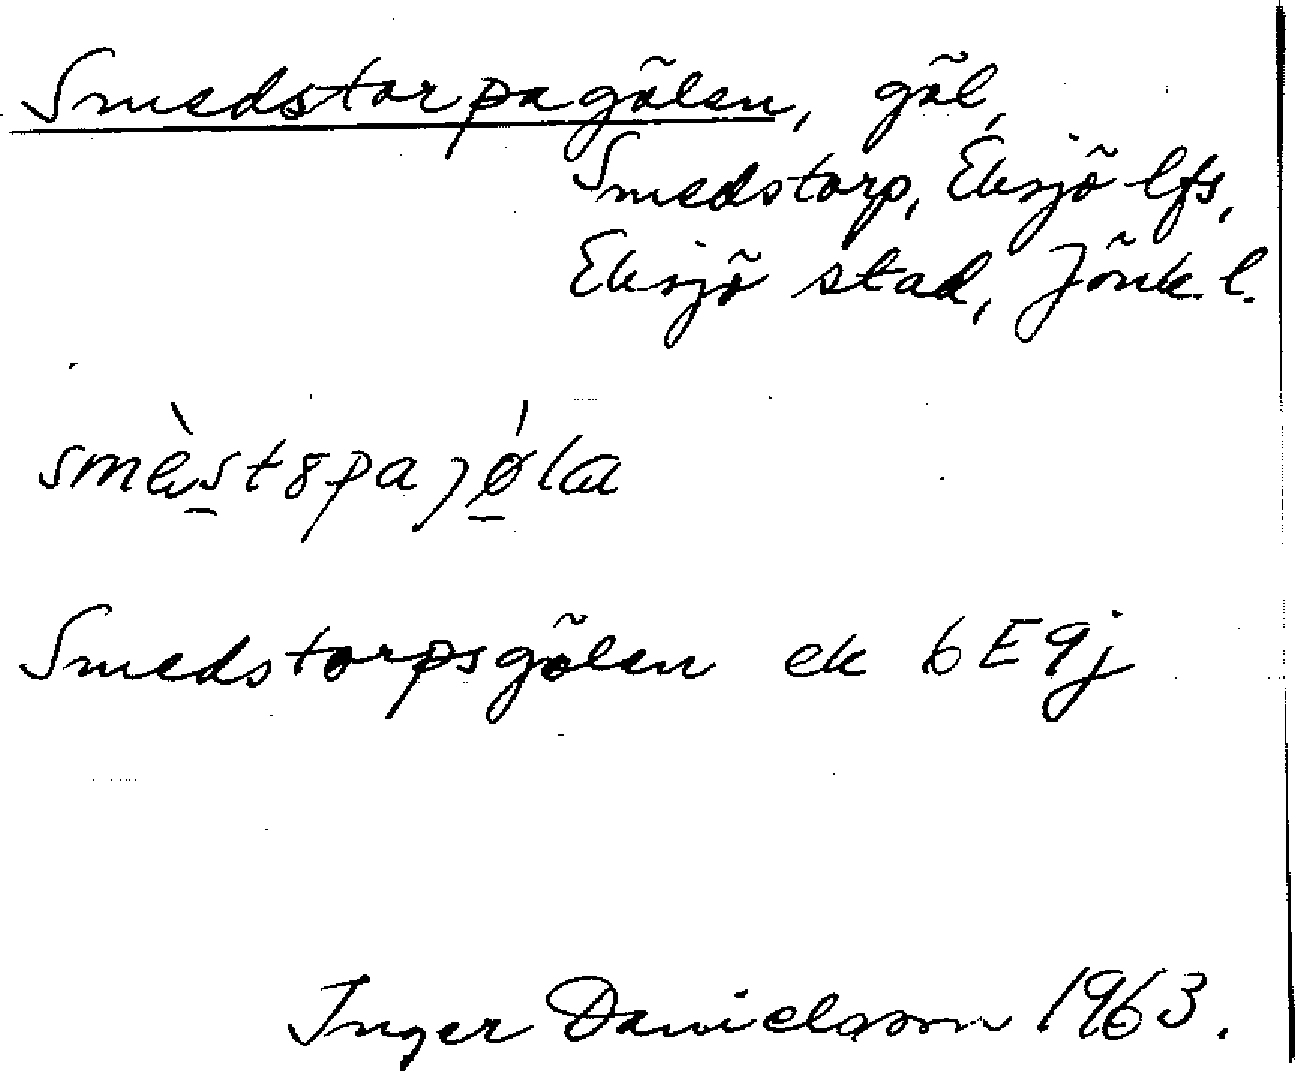 Smedstorpagölen, göl,
Smedstorp, Eksjö lfs,
Eksjö stad, Jönk. l.
Smedstorpsgölen ek 6E9j
Inger Danielsson 1963.